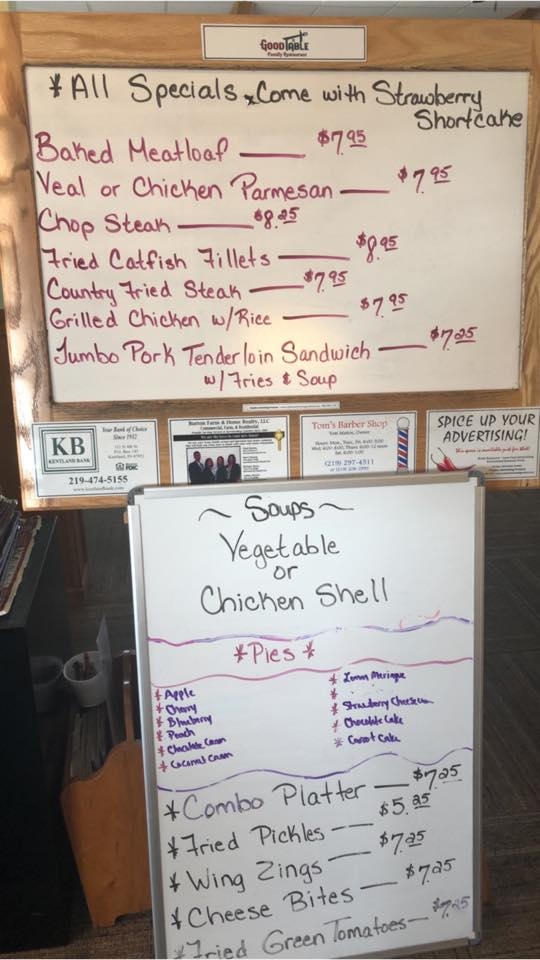 GOOD TABLE
Family Restaurant
* All Specials Come with Strawberry
Shortcake
Baked Meatloaf — $7.95
Veal or Chicken Parmesan — $7.95
Chop Steak — $8.25
Fried Catfish Fillets — $8.95
Country Fried Steak — $7.95
Grilled Chicken w/Rice — $7.95
Jumbo Pork Tenderloin Sandwich — $7.25
w/Fries & Soup
KB
KENTLAND BANK
Your Bank of Choice
Since 1932
219-474-5155
www.kentlandbank.com
Burton Farm & Home Realty, LLC
Commercial, Farm, & Residential
Tom's Barber Shop
Tom Matkin, Owner
(219) 297-4311
SPICE UP YOUR
ADVERTISING!
This space is available just for you!
~ Soups ~
Vegetable
or
Chicken Shell
* Pies *
* Apple
* Cherry
* Blueberry
* Peach
* Chocolate Cream
* Coconut Cream
* Lemon Meringue
*
* Strawberry
* Chocolate Cake
* Carrot Cake
* Combo Platter — $7.25
* Fried Pickles -- $5.25
* Wing Zings — $7.25
* Cheese Bites — $7.25
* Fried Green Tomatoes — $7.25